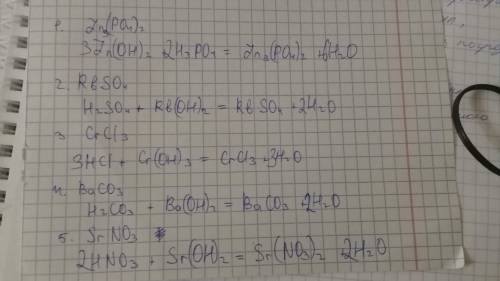 1. Zn3(PO4)2
3Zn(OH)2 2H3PO4 = Zn3(PO4)2 6H2O
2. RbSO4
H2SO4 + Rb(OH)2 = RbSO4 + 2H2O
3. CrCl3
3HCl + Cr(OH)3 = CrCl3 + 3H2O
4. BaCO3
H2CO3 + Ba(OH)2 = BaCO3 2H2O
5. SrNO3
2HNO3 + Sr(OH)2 = Sr(NO3)2 2H2O